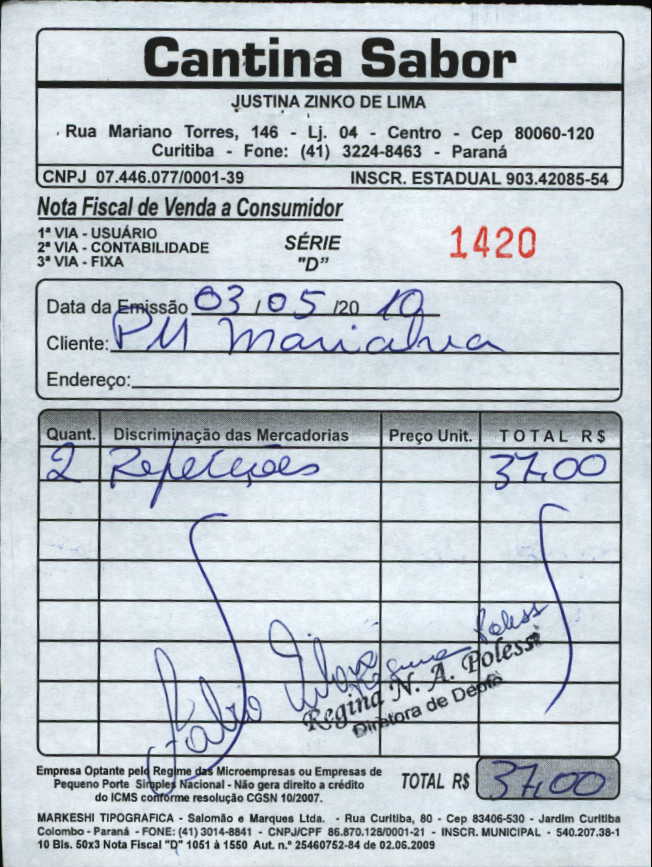 Cantina Sabor
JUSTINA ZINKO DE LIMA
Rua Mariano Torres, 146 - Lj. 04 - Centro - Cep 80060-120
Curitiba - Fone: (41) 3224-8463 - Paraná
CNPJ 07.446.077/0001-39 INSCR. ESTADUAL 903.42085-54
Nota Fiscal de Venda a Consumidor
1ª VIA - USUÁRIO
2ª VIA - CONTABILIDADE
3ª VIA - FIXA
SÉRIE
"D"
1420
Data da Emissão 03/05/20 10
Cliente: PM Marialva
Endereço:
Quant. Discriminação das Mercadorias Preço Unit. TOTAL R$
2 Refeições 37,00
Fábio
Regina Poless
Regina N. A. Polessi
Diretora de Depto
Empresa Optante pelo Regime das Microempresas ou Empresas de
Pequeno Porte Simples Nacional - Não gera direito a crédito
do ICMS conforme resolução CGSN 10/2007.
TOTAL R$ 37,00
MARKESHI TIPOGRAFICA - Salomão e Marques Ltda. - Rua Curitiba, 80 - Cep 83406-530 - Jardim Curitiba
Colombo - Paraná - FONE: (41) 3014-8841 - CNPJ/CPF 86.870.128/0001-21 - INSCR. MUNICIPAL - 540.207.38-1
10 Bls. 50x3 Nota Fiscal "D" 1051 à 1550 Aut. n.º 25460752-84 de 02.06.2009